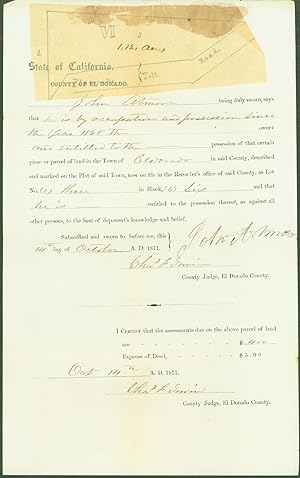 VI
3
Road
Toll
State of California,
COUNTY OF EL DORADO.
John being duly sworn, says
that he is by occupation and possession since
the year 1860 the owner
and entitled to the possession of that certain
piece or parcel of land in the Town of Eldorado in said County, described
and marked on the Plat of said Town, now on file in the Recorder's office of said County, as Lot
No. (3) Three in Block, (6) Six and that
he is entitled to the possession thereof, as against all
other persons, to the best of deponent's knowledge and belief.
Subscribed and sworn to before me, this
14th day of October A. D. 1871.
John
Chas F. Irwin
County Judge, El Dorado County.
I CERTIFY that the assessments due on the above parcel of land
are - - - - - - $
Expense of Deed, - - - - $5.00
Oct 14th A. D. 1871.
Chas F. Irwin
County Judge, El Dorado County.